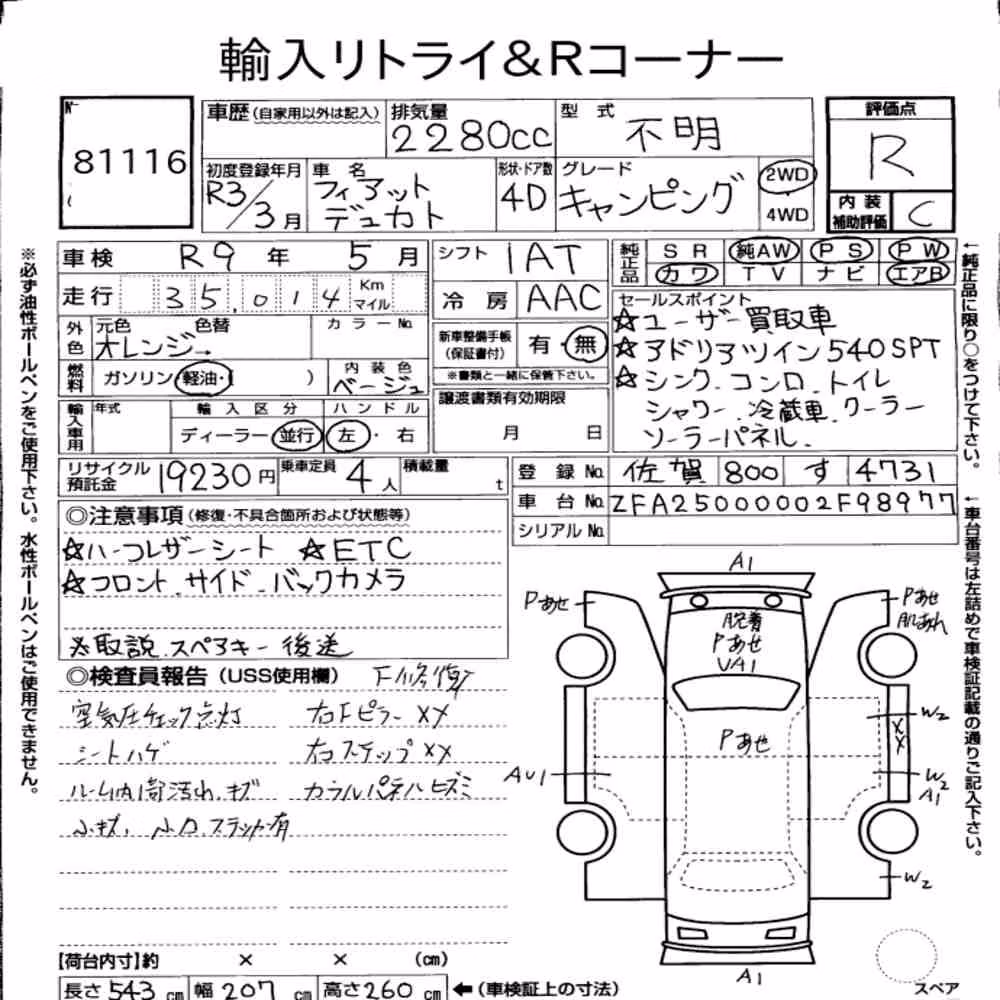 輸入リトライ&Rコーナー
No
81116
車歴(自家用以外は記入)
排気量
2280cc
型式
不明
評価点
R
初度登録年月
R3/3月
車名
フィアット
デュカト
形状・ドア数
4D
グレード
キャンピング
2WD
4WD
内装
補助評価
C
車検 R9年 5月
走行 35,014 Km
マイル
外色
元色 色替
オレンジ→
カラーNo.
燃料
ガソリン・軽油・( )
内装色
ベージュ
輸入車用
年式
輸入区分
ディーラー・並行
ハンドル
左・右
シフト
IAT
冷房
AAC
新車整備手帳
(保証書付)
有・無
※書類と一緒に保管下さい。
譲渡書類有効期限
月 日
純正品
SR 純AW PS PW
カワ TV ナビ エアB
セールスポイント
☆ユーザー買取車
☆アドリアツイン540SPT
☆シンク.コンロ.トイレ
シャワー.冷蔵車.クーラー
ソーラーパネル.
リサイクル
預託金
19230円
乗車定員
4人
積載量
t
登録No. 佐賀 800 す 4731
車台No. ZFA25000002F98977
シリアルNo.
◎注意事項(修復・不具合箇所および状態等)
☆ハーフレザーシート ☆ETC
☆フロント.サイド.バックカメラ
※取説.スペアキー後送
◎検査員報告(USS使用欄) F修復
空気圧チェック点灯 右Fピラー XX
シートハゲ 右ステップ XX
ルーム内部汚れ.キズ カウルパネルヒズミ
小キズ.小凹.スラッカー有
A1
Pあせ
脱着
Pあせ
UA1
Pあせ
肌あれ
Pあせ
AU1
W2
XX
W2
A1
W2
A1
スペア
【荷台内寸】約 × × (cm)
長さ543cm 幅207cm 高さ260cm ←(車検証上の寸法)
※必ず油性ボールペンをご使用下さい。水性ボールペンはご使用できません。
←純正品に限り○をつけて下さい。
←車台番号は左詰めで車検証記載の通りご記入下さい。